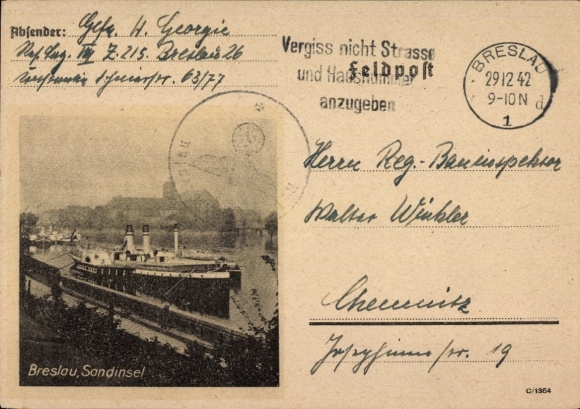 Absender: Gefr. H. Georgie
Res. Laz. VI Z. 215 Breslau 26
63/77
Vergiss nicht Strasse
und Hausnummer
anzugeben
Feldpost
BRESLAU
29.12.42
9-10 N d
1
Herrn Reg.-Bauinspektor
Walter Winkler
Chemnitz
Josephinenstr. 19
Breslau, Sandinsel
C/1364